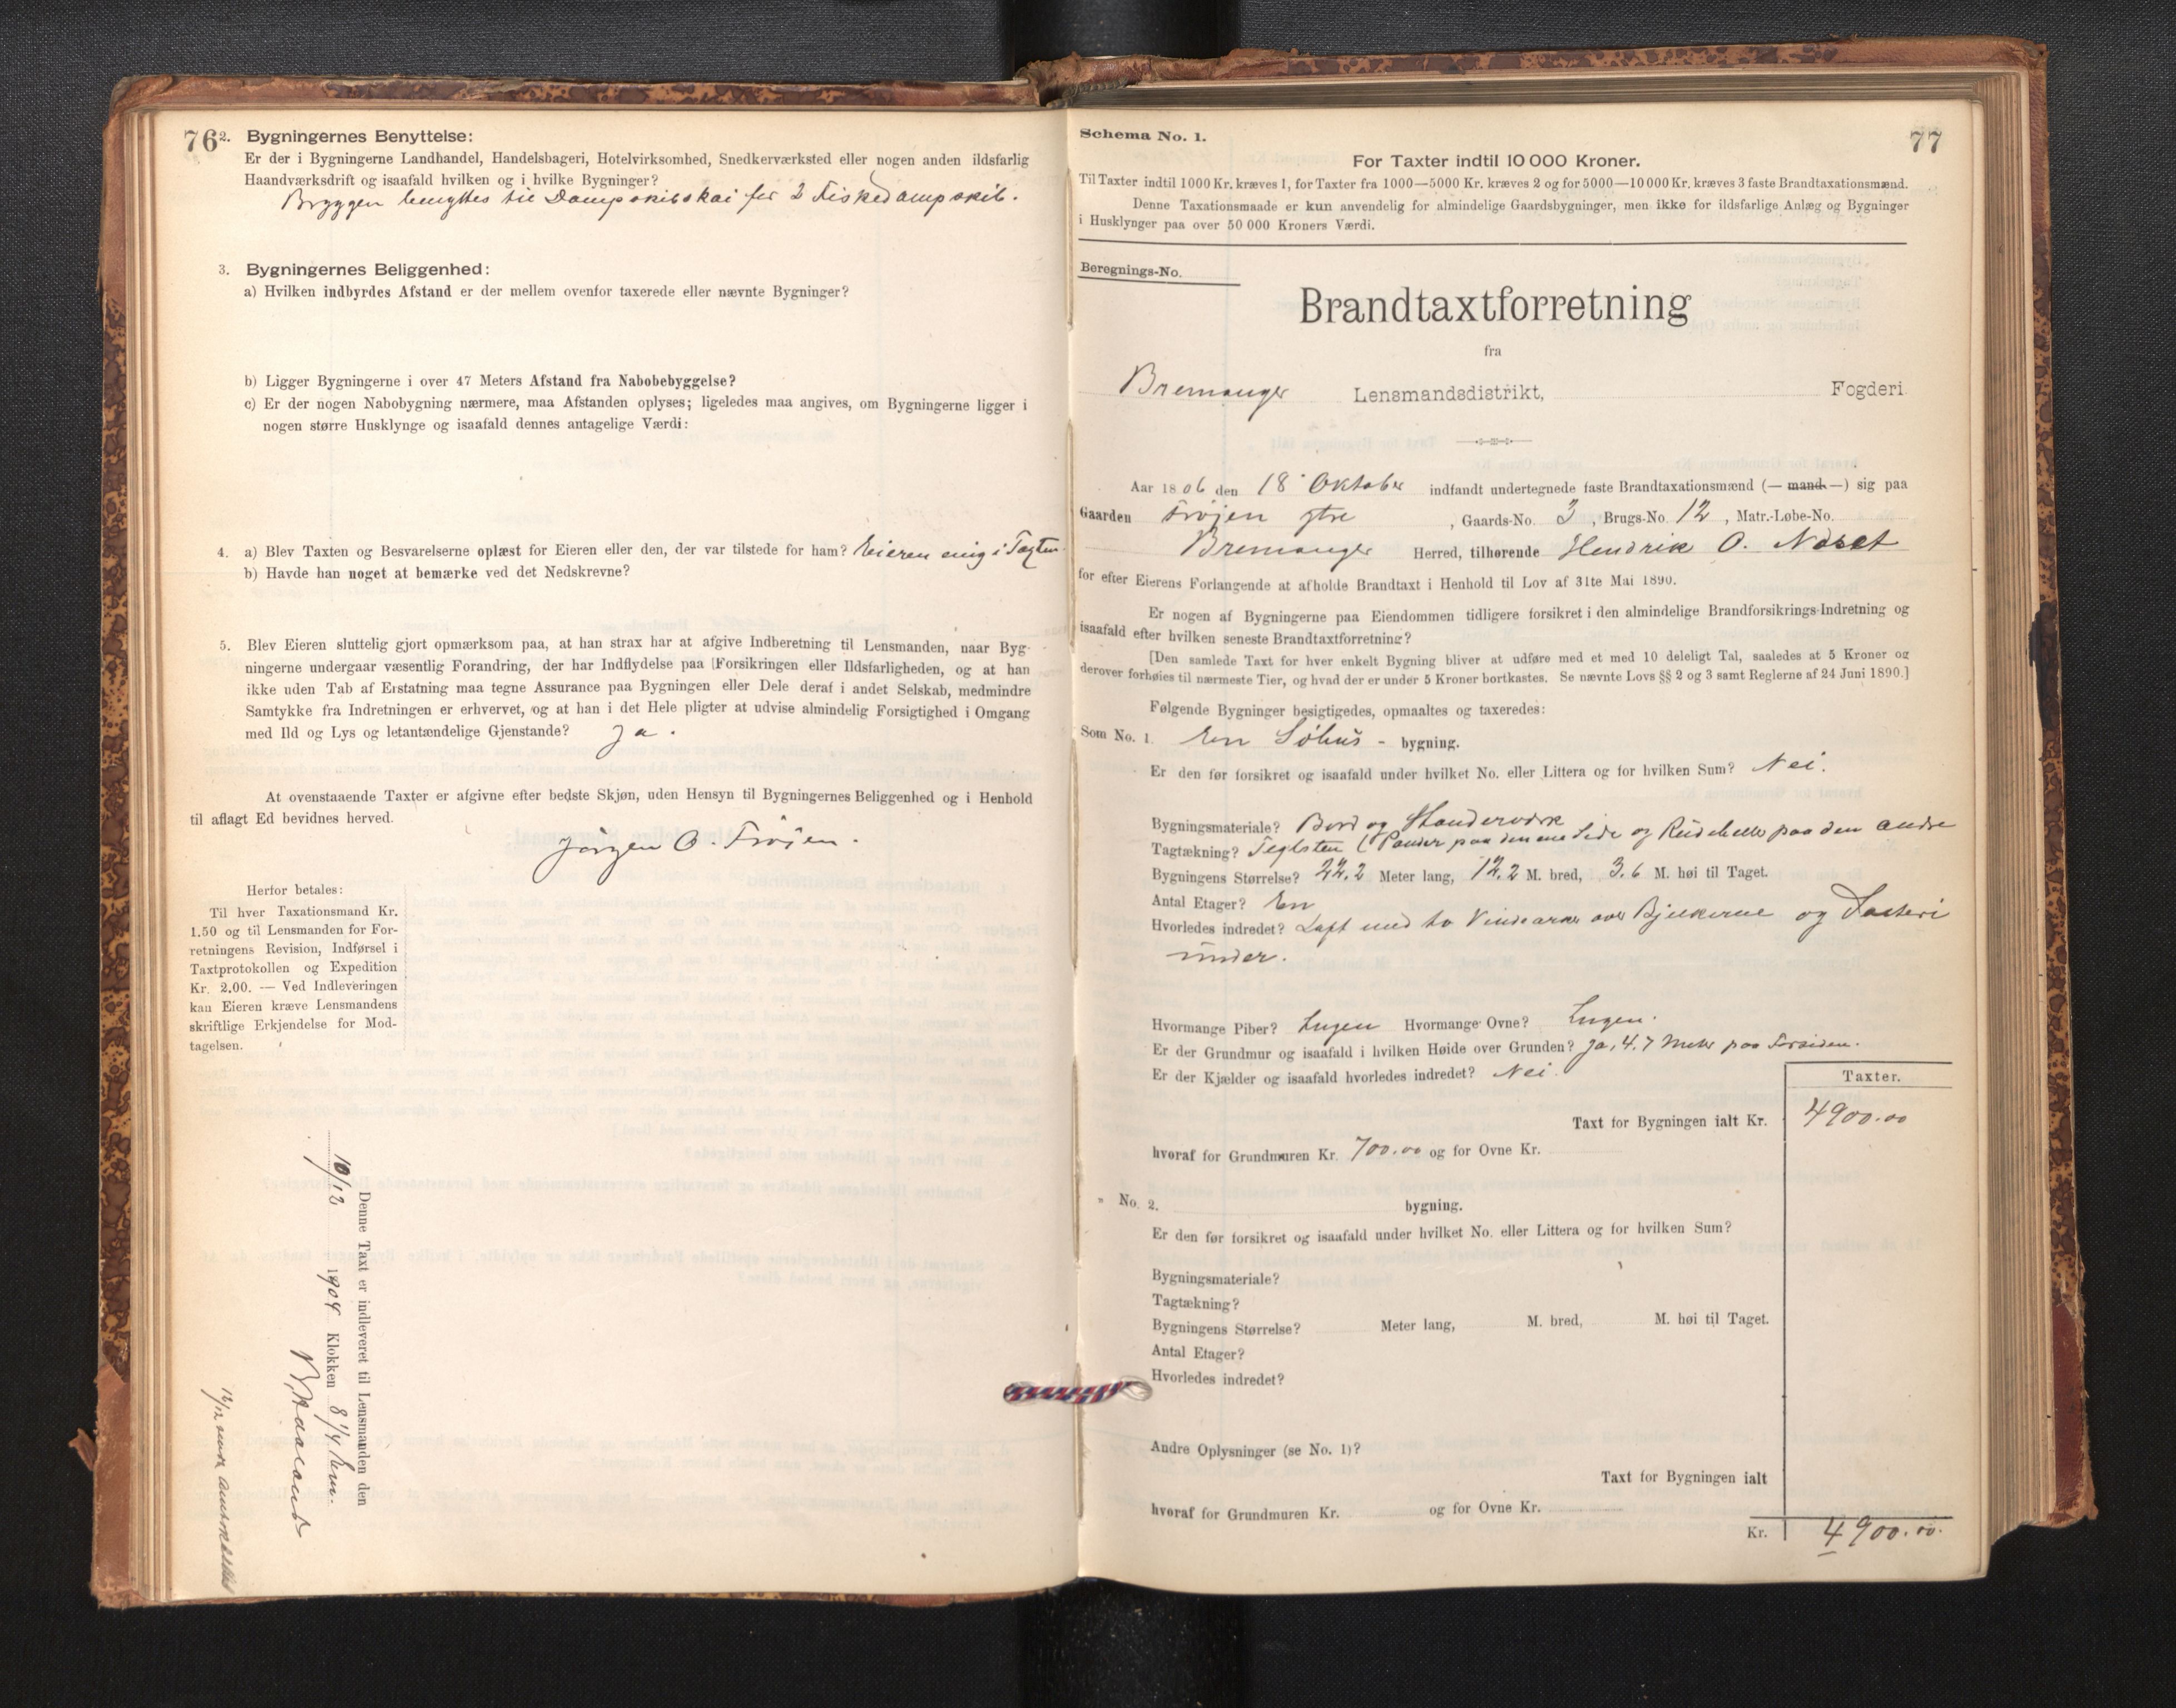 76
2. Bygningernes Benyttelse:
Er der i Bygningerne Landhandel, Handelsbageri, Hotelvirksomhed, Snedkerværksted eller nogen anden ildsfarlig
Haandværksdrift og isaafald hvilken og i hvilke Bygninger?
Bryggen benyttes til Dampskibskai for 2 Fiskedampskib.
3. Bygningernes Beliggenhed:
a) Hvilken indbyrdes Afstand er der mellem ovenfor taxerede eller nævnte Bygninger?
b) Ligger Bygningerne i over 47 Meters Afstand fra Nabobebyggelse?
c) Er der nogen Nabobygning nærmere, maa Afstanden oplyses; ligeledes maa angives, om Bygningerne ligger i
nogen større Husklynge og isaafald dennes antagelige Værdi:
4. a) Blev Taxten og Besvarelserne oplæst for Eieren eller den, der var tilstede for ham? Eieren enig i Taxten
b) Havde han noget at bemærke ved det Nedskrevne?
5. Blev Eieren sluttelig gjort opmærksom paa, at han strax har at afgive Indberetning til Lensmanden, naar Byg-
ningerne undergaar væsentlig Forandring, der har Indflydelse paa Forsikringen eller Ildsfarligheden, og at han
ikke uden Tab af Erstatning maa tegne Assurance paa Bygningen eller Dele deraf i andet Selskab, medmindre
Samtykke fra Indretningen er erhvervet, og at han i det Hele pligter at udvise almindelig Forsigtighed i Omgang
med Ild og Lys og letantændelige Gjenstande? Ja.
At ovenstaaende Taxter er afgivne efter bedste Skjøn, uden Hensyn til Bygningernes Beliggenhed og i Henhold
til aflagt Ed bevidnes herved.
Jørgen O. Frøjen.
Herfor betales:
Til hver Taxationsmand Kr.
1.50 og til Lensmanden for For-
retningens Revision, Indførsel i
Taxtprotokollen og Expedition
Kr. 2.00. — Ved Indleveringen
kan Eieren kræve Lensmandens
skriftlige Erkjendelse for Mod-
tagelsen.
Denne Taxt er indleveret til Lensmanden den
10/12 1904 Klokken 8 1/4 Em.
12/12
77
Schema No. 1.
For Taxter indtil 10 000 Kroner.
Til Taxter indtil 1000 Kr. kræves 1, for Taxter fra 1000—5000 Kr. kræves 2 og for 5000—10 000 Kr. kræves 3 faste Brandtaxationsmænd.
Denne Taxationsmaade er kun anvendelig for almindelige Gaardsbygninger, men ikke for ildsfarlige Anlæg og Bygninger
i Husklynger paa over 50 000 Kroners Værdi.
Beregnings-No.
Brandtaxtforretning
fra
Bremanger Lensmandsdistrikt, Fogderi
Aar 1806 den 18 Oktober indfandt undertegnede faste Brandtaxationsmænd (— mand —) sig paa
Gaarden Frøjen ytre, Gaards-No. 3, Brugs-No. 12, Matr.-Løbe-No.
Bremanger Herred, tilhørende Hendrik O. Nøset
for efter Eierens Forlangende at afholde Brandtaxt i Henhold til Lov af 31te Mai 1890.
Er nogen af Bygningerne paa Eiendommen tidligere forsikret i den almindelige Brandforsikrings-Indretning og
isaafald efter hvilken seneste Brandtaxtforretning?
[Den samlede Taxt for hver enkelt Bygning bliver at udføre med et med 10 deleligt Tal, saaledes at 5 Kroner og
derover forhøies til nærmeste Tier, og hvad der er under 5 Kroner bortkastes. Se nævnte Lovs §§ 2 og 3 samt Reglerne af 24 Juni 1890.]
Følgende Bygninger besigtigedes, opmaaltes og taxeredes:
Som No. 1. En Søhus - bygning.
Er den før forsikret og isaafald under hvilket No. eller Littera og for hvilken Sum? Nei.
Bygningsmateriale? Bord og Standerværk
Tagtækning? Teglsten (Pander paa den ene Side og paa den andre
Bygningens Størrelse? 22,2 Meter lang, 12,2 M. bred, 3,6 M. høi til Taget.
Antal Etager? En
Hvorledes indredet? Loft med to over Bjelkerne og Salteri
under.
Hvormange Piber? Ingen Hvormange Ovne? Ingen.
Er der Grundmur og isaafald i hvilken Høide over Grunden? Ja, 4,7 Meter paa Forsiden.
Er der Kjælder og isaafald hvorledes indredet? Nei.
Taxter.
Taxt for Bygningen ialt Kr. 4900.00
hvoraf for Grundmuren Kr. 700.00 og for Ovne Kr.
" No. 2. bygning.
Er den før forsikret og isaafald under hvilket No. eller Littera og for hvilken Sum?
Bygningsmateriale?
Tagtækning?
Bygningens Størrelse? Meter lang, M. bred, M. høi til Taget.
Antal Etager?
Hvorledes indredet?
Andre Oplysninger (se No. 1)?
Taxt for Bygningen ialt
hvoraf for Grundmuren Kr. og for Ovne Kr.
Kr. 4900.00.